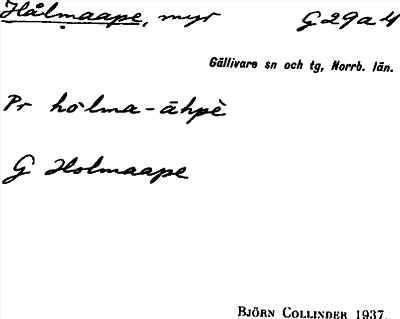 Hålmaape, myr G29a4
Gällivare sn och tg, Norrb. län.
Pr hòlma-āhpè
G Holmaape
BJÖRN COLLINDER 1937.